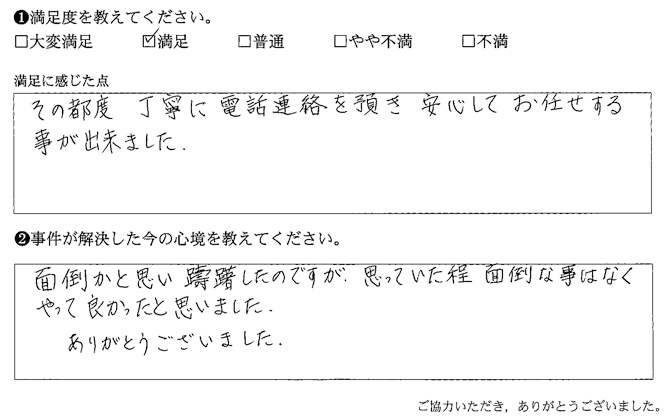 ❶満足度を教えてください。
□大変満足 ☑満足 □普通 □やや不満 □不満
満足に感じた点
その都度 丁寧に 電話連絡を頂き 安心して お任せする
事が出来ました.
❷事件が解決した今の心境を教えてください。
面倒かと思い 躊躇したのですが. 思っていた程 面倒な事はなく
やって 良かったと思いました.
ありがとうございました.
ご協力いただき，ありがとうございました。